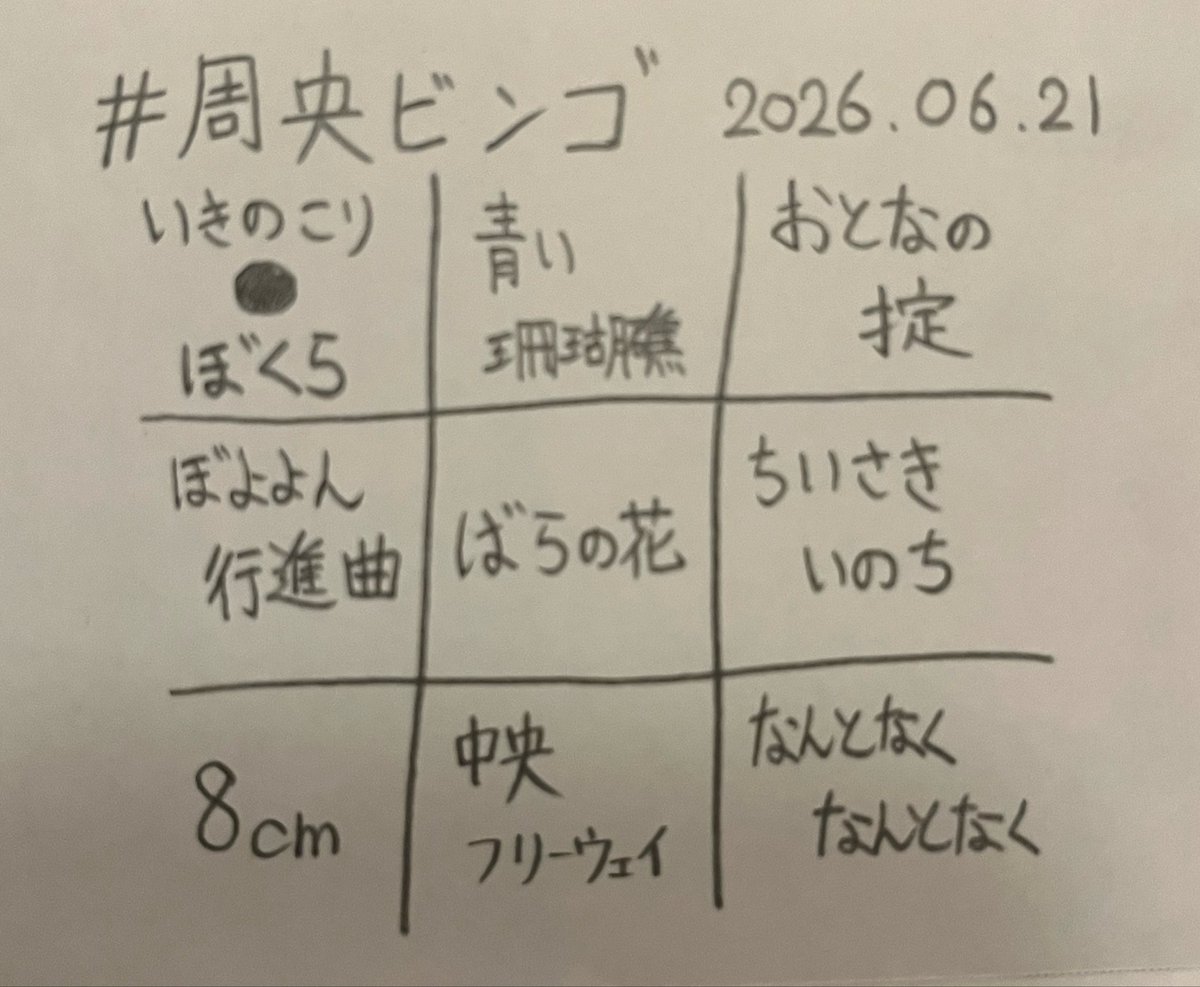 #周央ビンゴ 2026.06.21
いきのこり
●
ぼくら
青い
珊瑚礁
おとなの
掟
ぼよよん
行進曲
ばらの花
ちいさき
いのち
8cm
中央
フリーウェイ
なんとなく
なんとなく